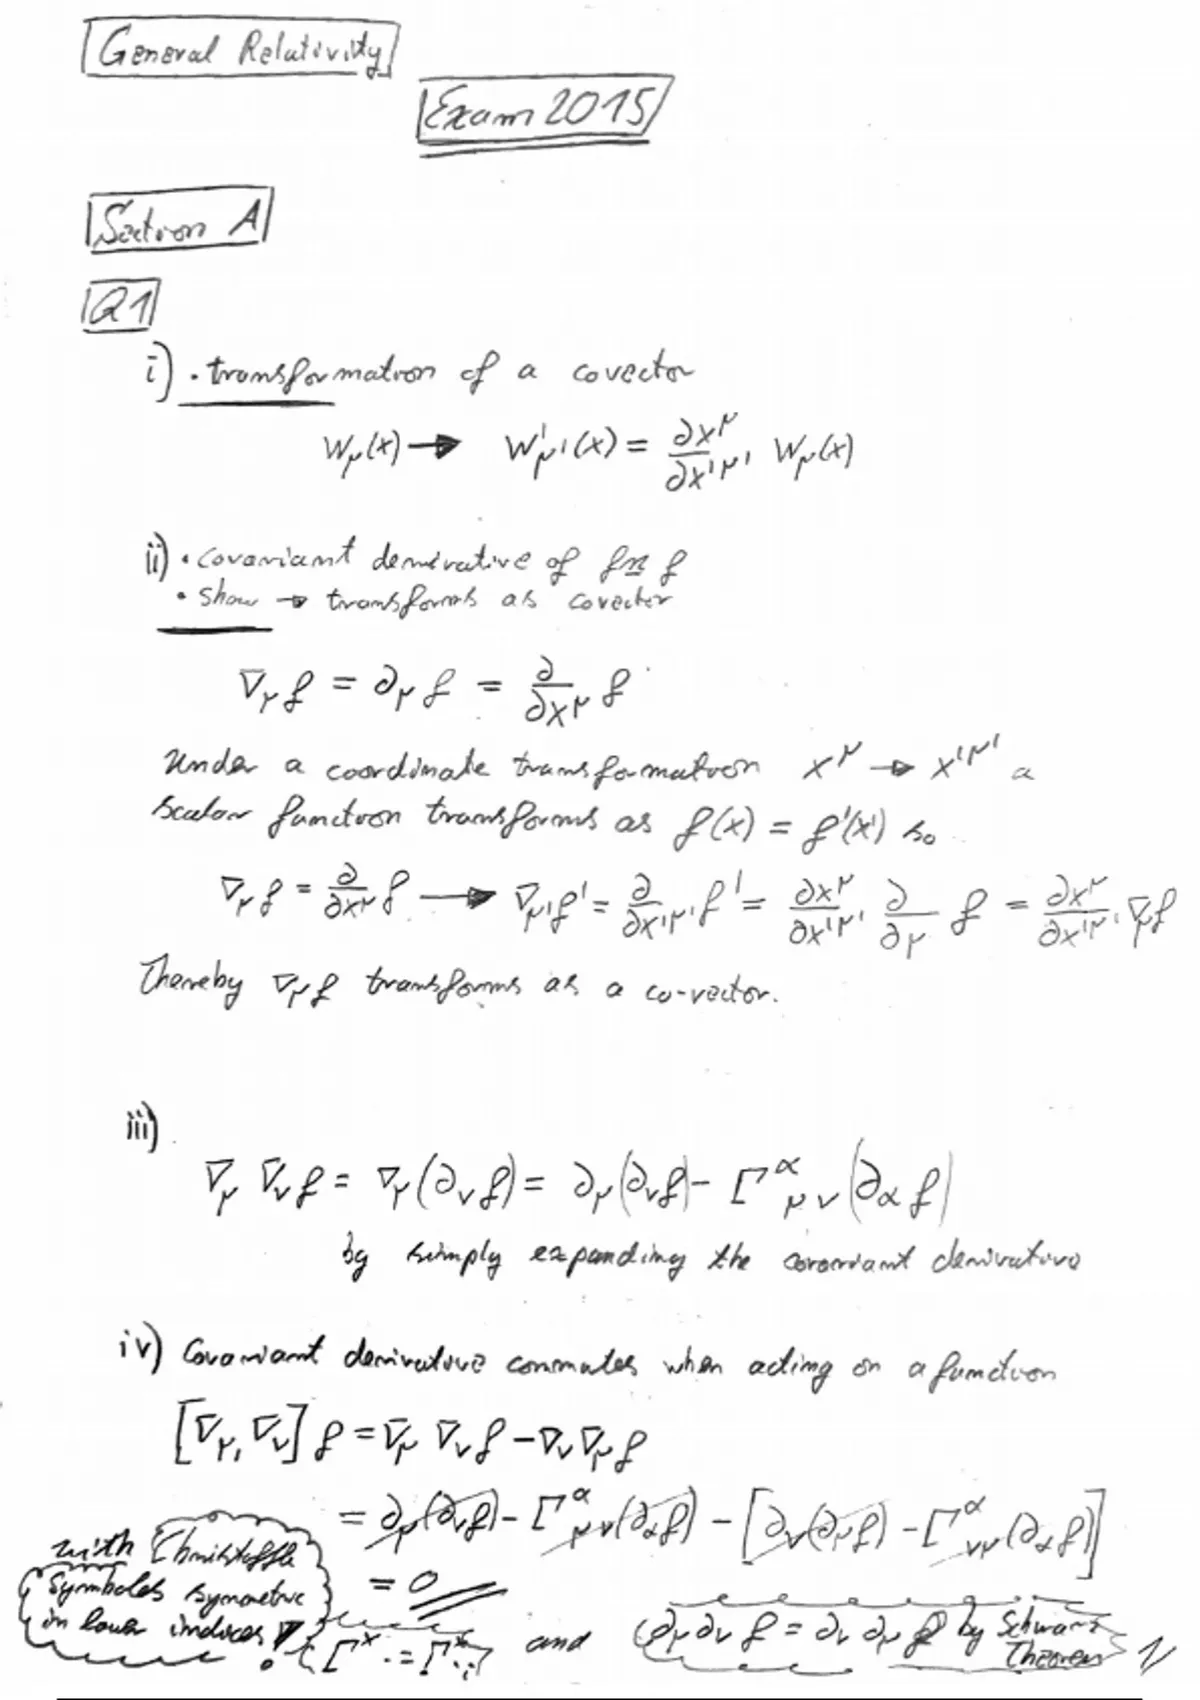 General Relativity
Exam 2015
Section A
Q1
i) • transformation of a covector
W_μ(x) → W'_μ'(x) = ∂x^μ/∂x'^μ' W_μ(x)
ii) • covariant derivative of fn f
• show → transforms as covector
∇_μ f = ∂_μ f = ∂/∂x^μ f
Under a coordinate transformation x^μ → x'^μ' a
scalar function transforms as f(x) = f'(x') so
∇_μ f = ∂/∂x^μ f → ∇_μ' f' = ∂/∂x'^μ' f' = ∂x^μ/∂x'^μ' ∂/∂_μ f = ∂x^μ/∂x'^μ' ∇_μ f
Thereby ∇_μ f transforms as a co-vector.
iii)
∇_μ ∇_ν f = ∇_μ(∂_ν f) = ∂_μ(∂_ν f) - Γ^α_μν (∂_α f)
by simply expanding the covariant derivative
iv) Covariant derivative commutes when acting on a function
[∇_μ, ∇_ν] f = ∇_μ ∇_ν f - ∇_ν ∇_μ f
= ∂_μ(∂_ν f) - Γ^α_μν (∂_α f) - [∂_ν(∂_μ f) - Γ^α_νμ (∂_α f)]
= 0
with Christoffle
symbols symmetric
in lower indices!
and (∂_μ ∂_ν f = ∂_ν ∂_μ f by Schwarz
Theorem